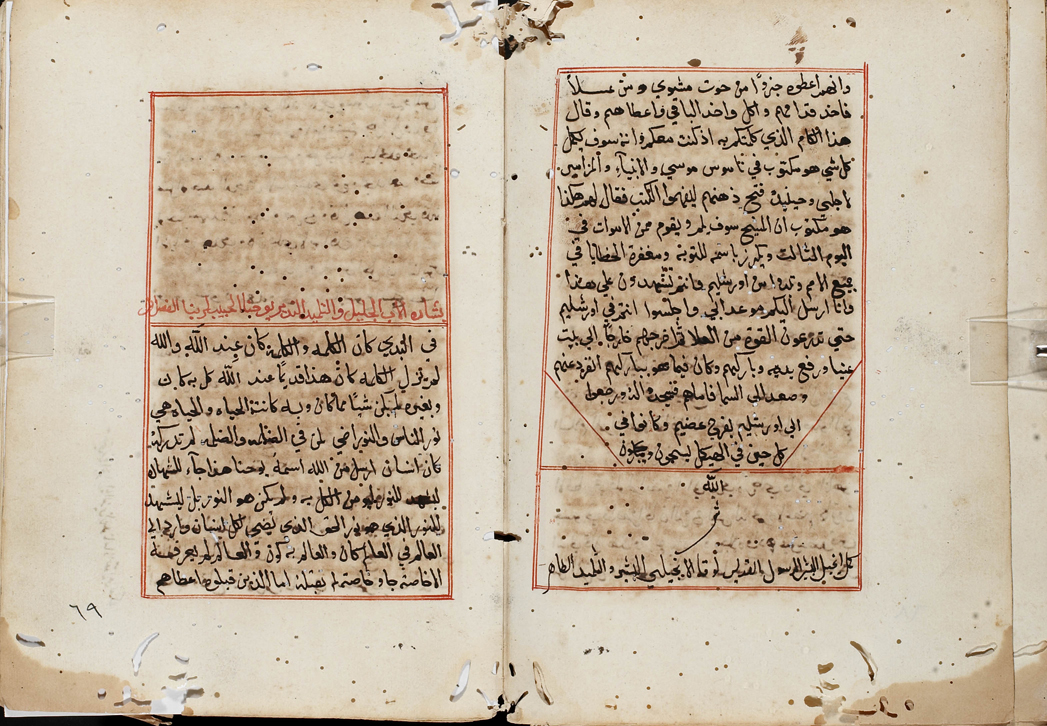 وانهم اعطوه جزوًا من حوت مشوي ومن عسلاً
فاخد قدامهم واكل واخد الباقي واعطاهم وقال
هذا الكلام الذي كلمتكم به اذ كنت معكم وانه سوف يكمل
كل شي هو مكتوب في ناموس موسي والانبيآء والمزامير
لاجلي وحينيذ فتح ذهنهم ليفهموا الكتب فقال لهم هكذا
هو مكتوب ان المسيح سوف يالم ويقوم من الاموات في
اليوم التالت ويكرز باسمه للتوبه ومغفرة الخطايا في
جميع الامم وتبدوا من اورشليم وانتم تشهدون علي هذا
وانا ارسل اليكم موعد ابي واجلسوا انتم في اورشليم
حتي تدرعون القوة من العلا ثم اخرجهم خارجًا الي بيت
عنيا ورفع يديه وباركهم وكان فيما هو يباركهم انفرد عنهم
وصعد الي السما فاماهم فسجدوا له ورجعوا
الي اورشليم بفرح عضيم وكانوا في
كل حين في الهيكل يسبحون ويباركون
الله
كمل انجيل البشير الرسول القديس لوقا الانجيلي البشير والتلميد الطاهر
بشارة الاب الجليل والتلميد
في البدي كان الكلمه والكلمه كان عند الله والله
لم يزل الكلمه كان هذا قديمًا عند الله كل به كان
وبغيره لم يكن شيًا مما كان وبه كانت الحياه والحياه هي
نور الناس والنور اضي في الضلمه والضلمه لم تدركه
كان انسان ارسل من الله اسمه يوحنا هذا جآء للشهاده
ليشهد للنور من الكل به ولم يكن هو النور بل ليشهد
للنور الذي هو نور الحق الذي يضي لكل انسان وارد الي
العالم في العالم كان والعالم به كون والعالم لم يعرفه
الا خاصته جا وخاصته لم يقبله اما الذين قبلوه اعطاهم
٦٩